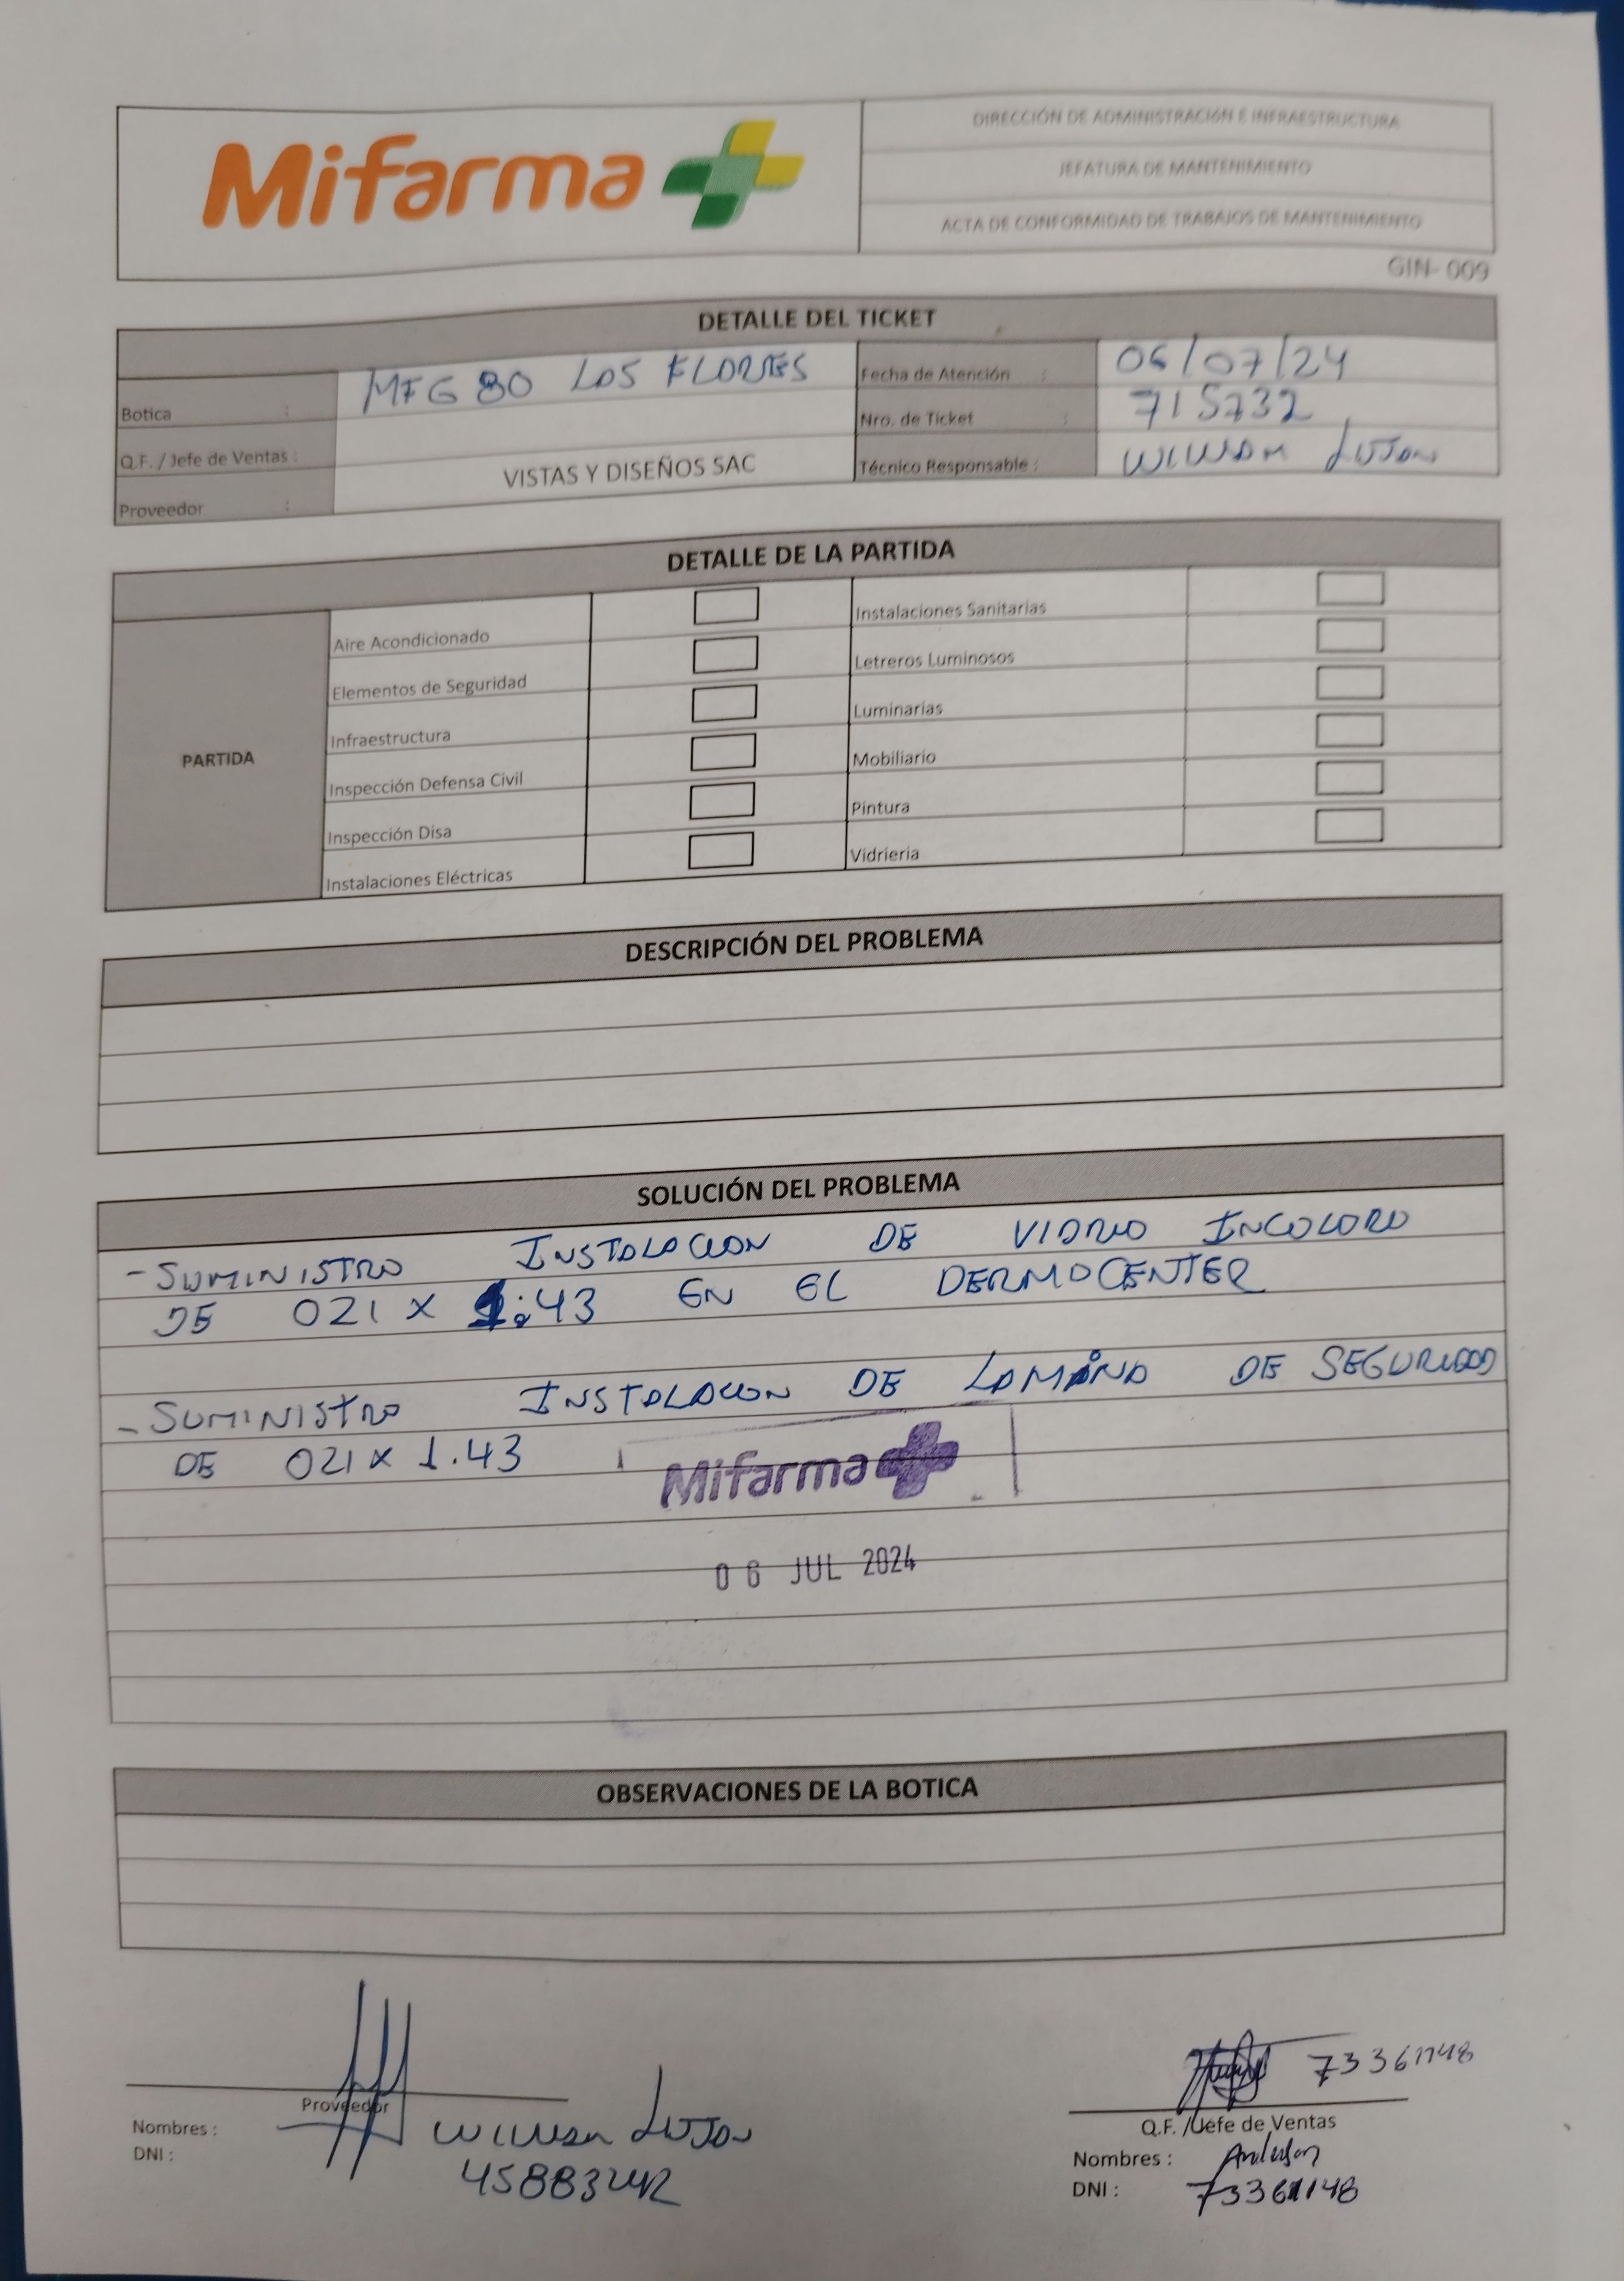 Mifarma
DIRECCIÓN DE ADMINISTRACIÓN E INFRAESTRUCTURA
JEFATURA DE MANTENIMIENTO
ACTA DE CONFORMIDAD DE TRABAJOS DE MANTENIMIENTO
GIN- 009
DETALLE DEL TICKET
Botica : MFG 80 LOS FLORES
Fecha de Atención : 06/07/24
Q.F. / Jefe de Ventas :
Nro. de Ticket : 715732
Proveedor : VISTAS Y DISEÑOS SAC
Técnico Responsable : WILLIAM LUJAN
DETALLE DE LA PARTIDA
PARTIDA
Aire Acondicionado
Instalaciones Sanitarias
Elementos de Seguridad
Letreros Luminosos
Infraestructura
Luminarias
Inspección Defensa Civil
Mobiliario
Inspección Disa
Pintura
Instalaciones Eléctricas
Vidrieria
DESCRIPCIÓN DEL PROBLEMA
SOLUCIÓN DEL PROBLEMA
- SUMINISTRO INSTALACION DE VIDRIO INCOLORO
DE 021 X 1.43 EN EL DERMOCENTER
- SUMINISTRO INSTALACION DE LAMINA DE SEGURIDAD
DE 021 X 1.43
Mifarma
06 JUL 2024
OBSERVACIONES DE LA BOTICA
Proveedor
Nombres : WILLIAM LUJAN
DNI :
73361148
Q.F. /Jefe de Ventas
Nombres : Anderson
DNI : 73361148